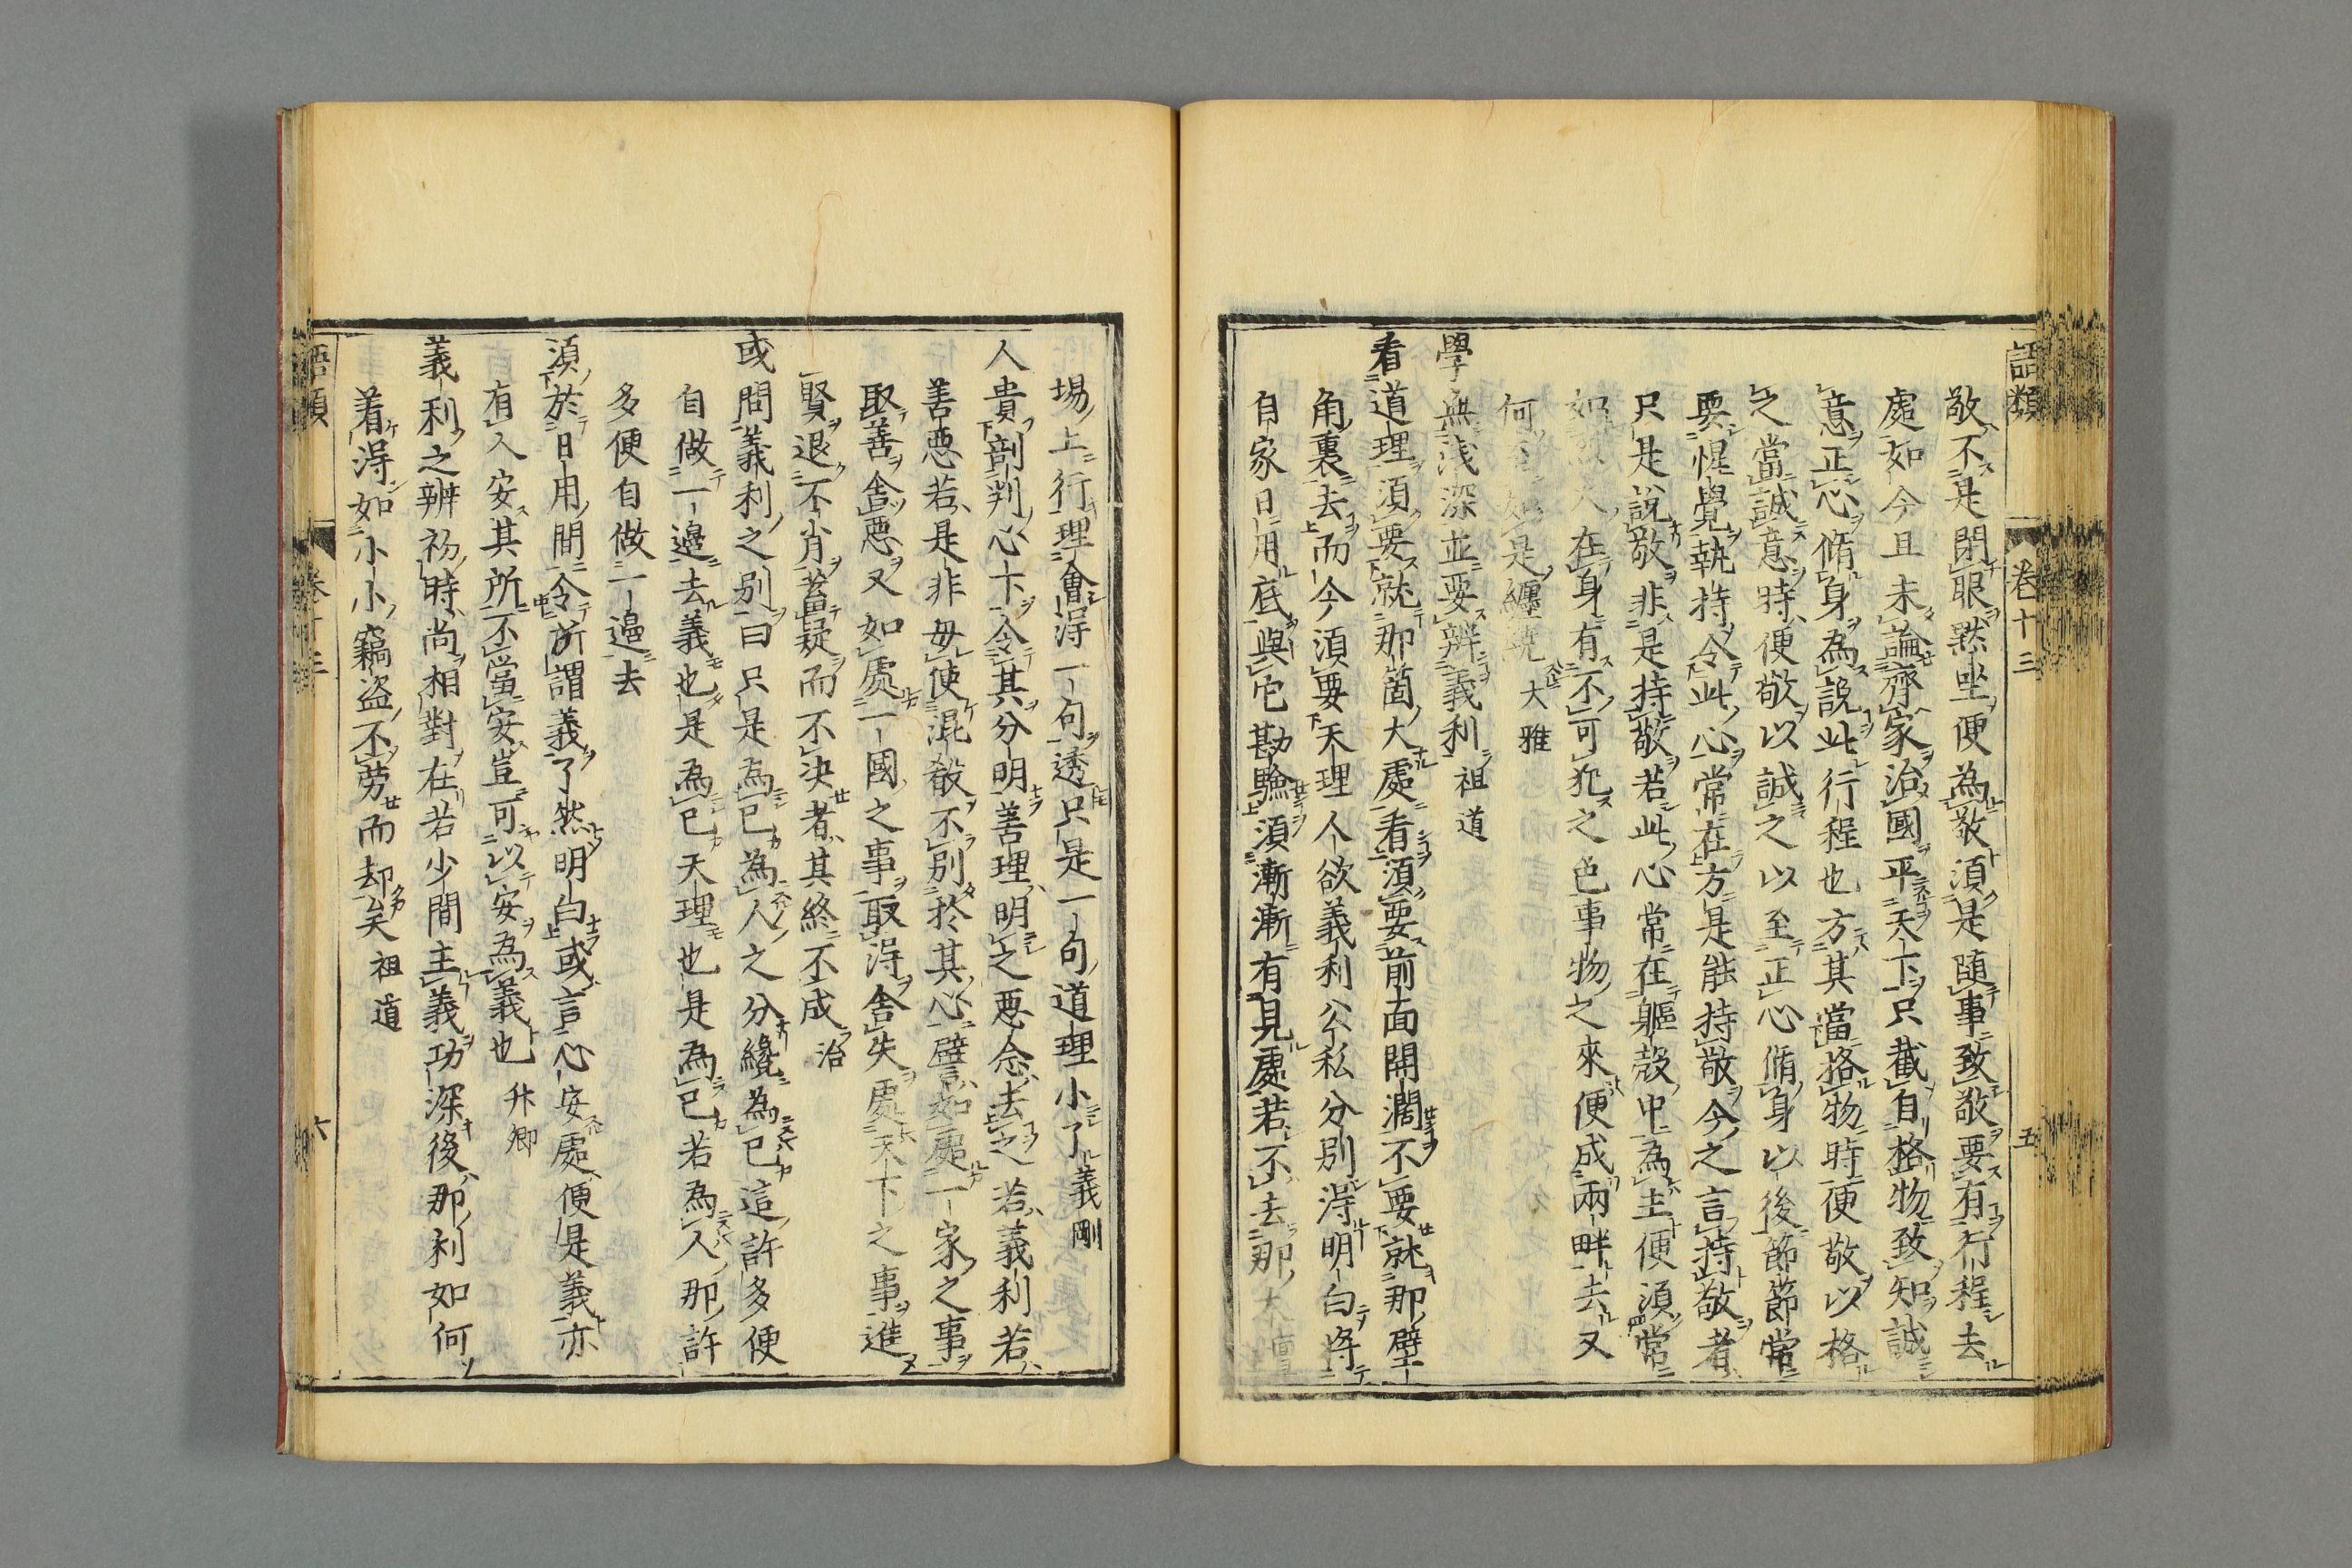 語類 卷十三 五
敬不是閉眼默坐便為敬須是隨事致敬要有行程去
處如今且未論齊家治國平天下只截自格物致知誠
意正心脩身為說此行程也方其當格物時便敬以格
之當誠意時便敬以誠之以至正心脩身以後節節常
要惺覺執持令此心常在方是能持敬今之言持敬者
只是說敬非是持敬若此心常在軀殼中為主便須常
如烈火在身有不可犯之色事物之來便成兩畔去又
何至如是纏繞大雅
學無淺深並要辨義利祖道
看道理須要就那箇大處看須要前面開濶不要就那壁
角裏去而今須要天理人欲義利公私分別得明白將
自家日用底與它勘驗須漸漸有見處若不去那大壇
場上行理會得一句透只是一句道理小了義剛
人貴剖判心下令其分明善理明之惡念去之若義利若
善惡若是非毋使混殽不別於其心譬如處一家之事
取善舍惡又如處一國之事取得舍失處天下之事進
賢退不肖蓄疑而不決者其終不成洽
或問義利之別曰只是為己為人之分纔為己這許多便
自做一邊去義也是為己天理也是為己若為人那許
多便自做一邊去
須於日用間令所謂義了然明白或言心安處便是義亦
有人安其所不當安豈可以安為義也升卿
義利之辨初時尚相對在若少間主義功深後那利如何
着得如小小竊盜不勞而却矣祖道
語類 卷十三 六